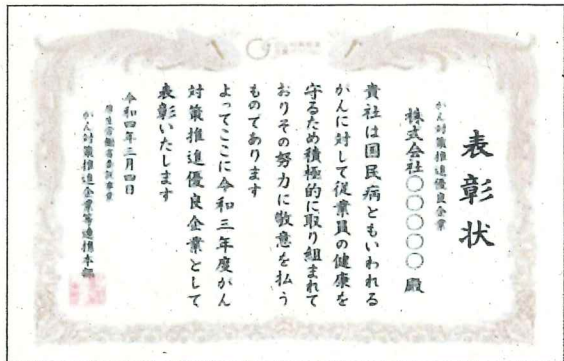 表彰状
がん対策推進優良企業
株式会社〇〇〇〇〇殿
貴社は国民病ともいわれる
がんに対して従業員の健康を
守るため積極的に取り組まれて
おりその努力に敬意を払う
ものであります
よってここに令和三年度がん
対策推進優良企業として
表彰いたします
令和四年三月四日
厚生労働省委託事業
がん対策推進企業等連携本部